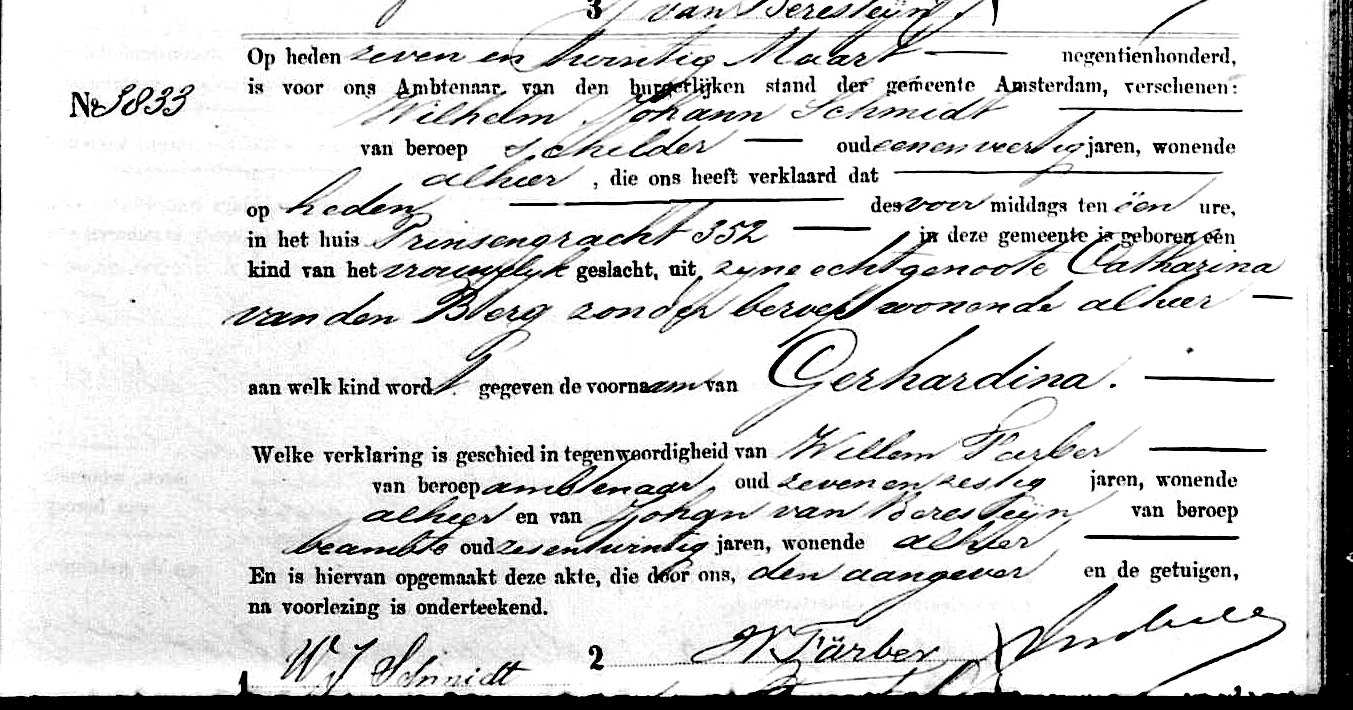 3 J van Beresteyn
Op heden zeven en twintig Maart negentienhonderd,
is voor ons Ambtenaar van den burgerlijken stand der gemeente Amsterdam, verschenen:
No 3833
Wilhelm Johann Schmidt
van beroep schilder oud eenenveertig jaren, wonende
alhier, die ons heeft verklaard dat
op heden des voor middags ten één ure,
in het huis Prinsengracht 352 in deze gemeente is geboren een
kind van het vrouwelyk geslacht, uit zyne echtgenoote Catharina
van den Berg zonder beroep wonende alhier
aan welk kind wordt gegeven de voornaam van Gerhardina.
Welke verklaring is geschied in tegenwoordigheid van Willem Färber
van beroep ambtenaar, oud zevenenzestig jaren, wonende
alhier en van Johan van Beresteÿn van beroep
beambte oud zesentwintig jaren, wonende alhier
En is hiervan opgemaakt deze akte, die door ons, den aangever en de getuigen,
na voorlezing is onderteekend.
1 W J Schmidt 2 W Färber